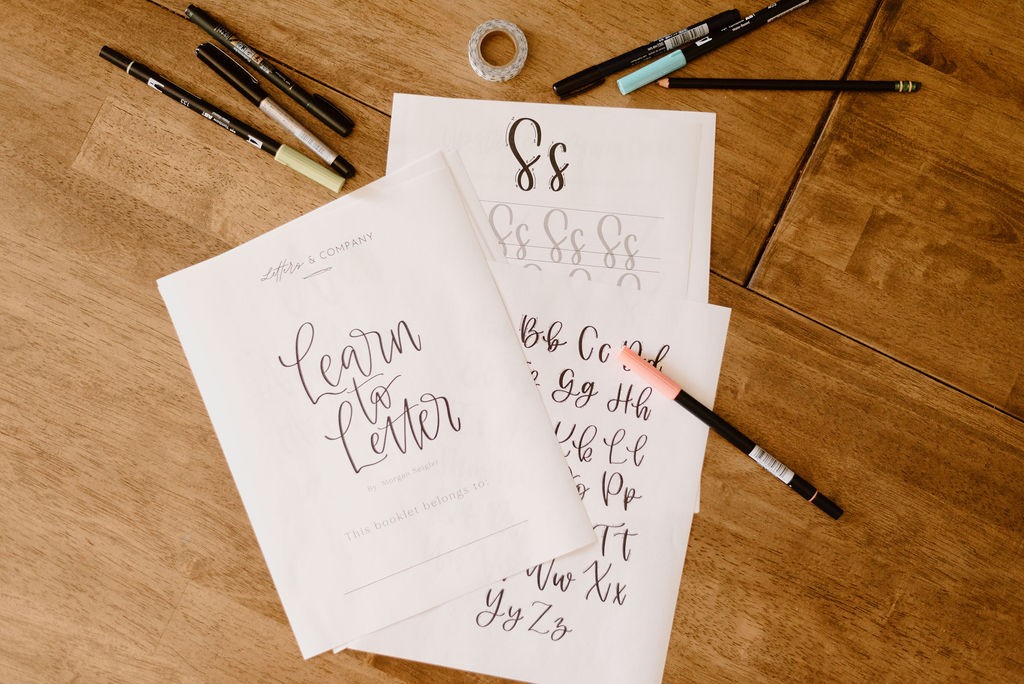 Letters & COMPANY
Learn
to
Letter
By Morgan Seigler
This booklet belongs to:
Ss
Ss Ss Ss
Bb Cc Dd
Gg Hh
Kk Ll
Pp
Tt
Ww Xx
Yy Zz